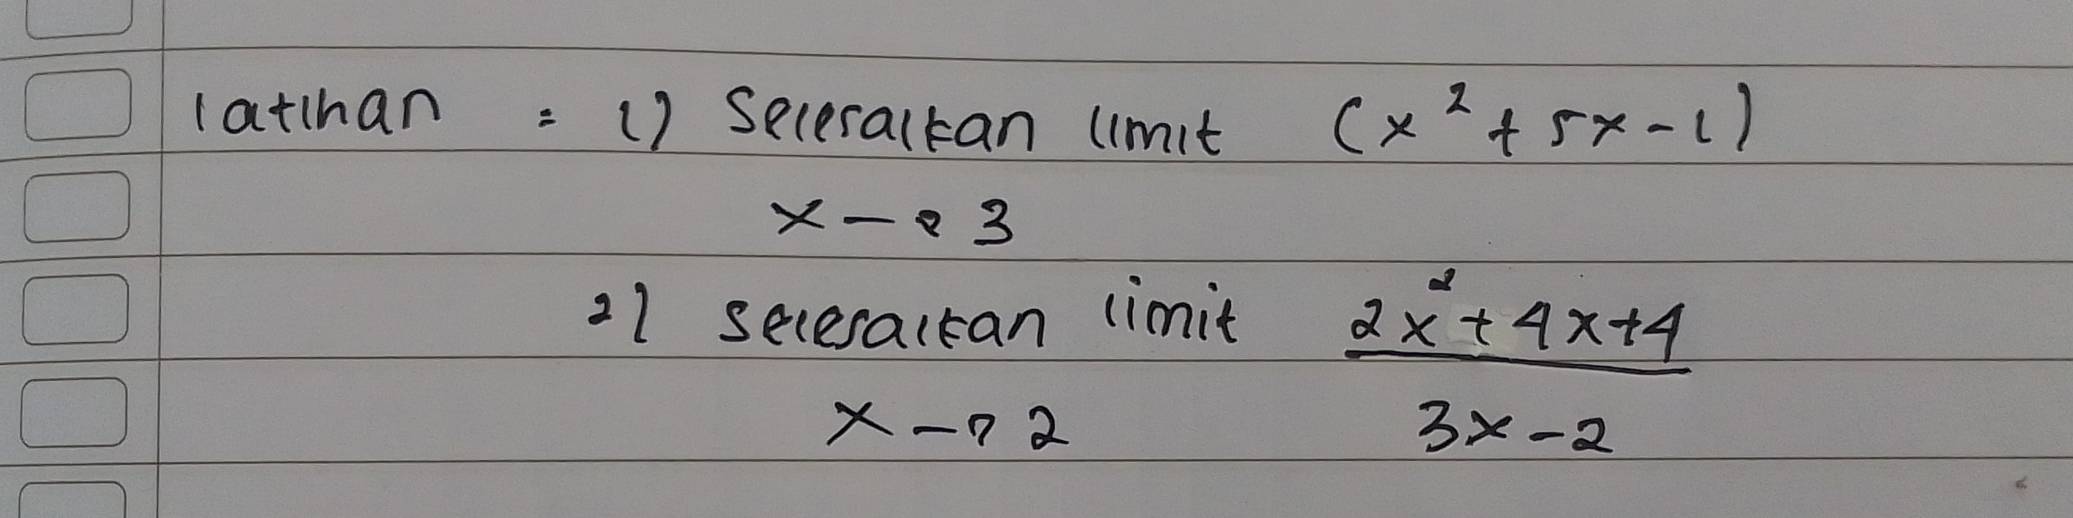 latihan = 1) Selesaikan limit (x² + 5x - 1)
x → 3
2) selesaikan limit 2x² + 4x + 4
x → 2 3x - 2